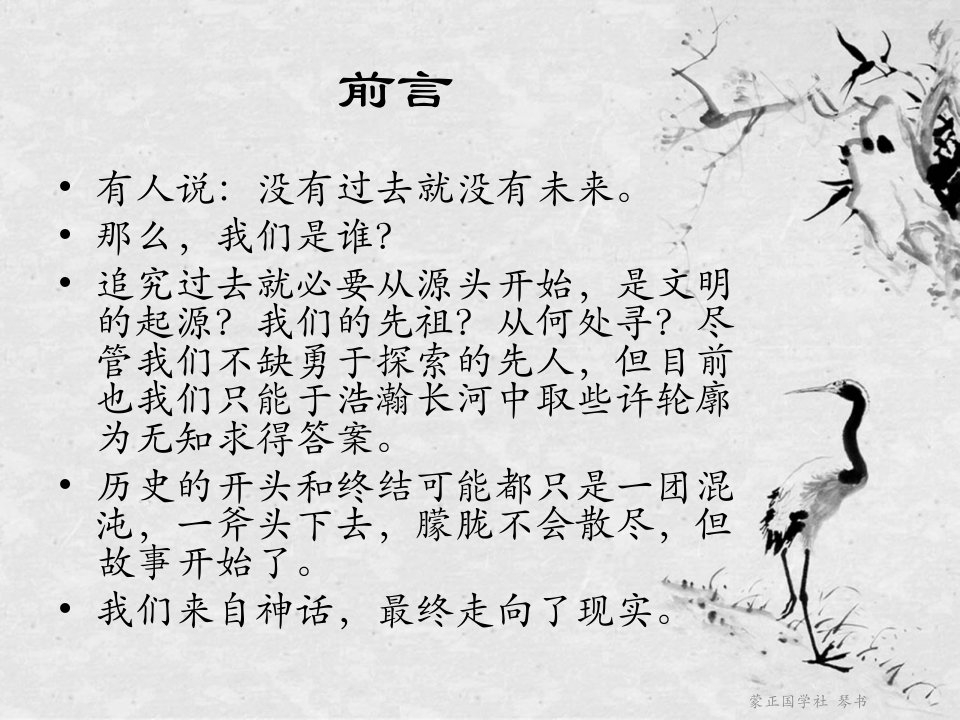 前言
• 有人说：没有过去就没有未来。
• 那么，我们是谁？
• 追究过去就必要从源头开始，是文明
的起源？我们的先祖？从何处寻？尽
管我们不缺勇于探索的先人，但目前
也我们只能于浩瀚长河中取些许轮廓
为无知求得答案。
• 历史的开头和终结可能都只是一团混
沌，一斧头下去，朦胧不会散尽，但
故事开始了。
• 我们来自神话，最终走向了现实。
蒙正国学社 琴书